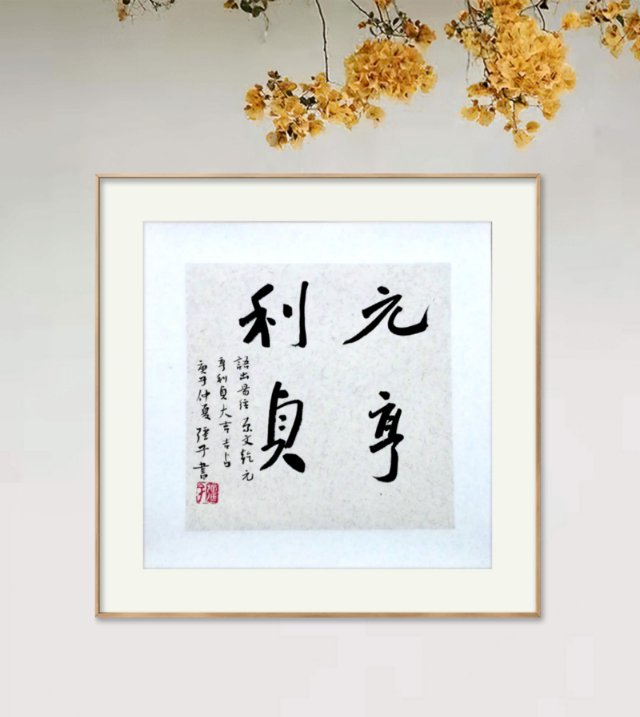 元亨
利貞
語出易經原文乾元
亨利貞大吉吉占
庚子仲夏強子書